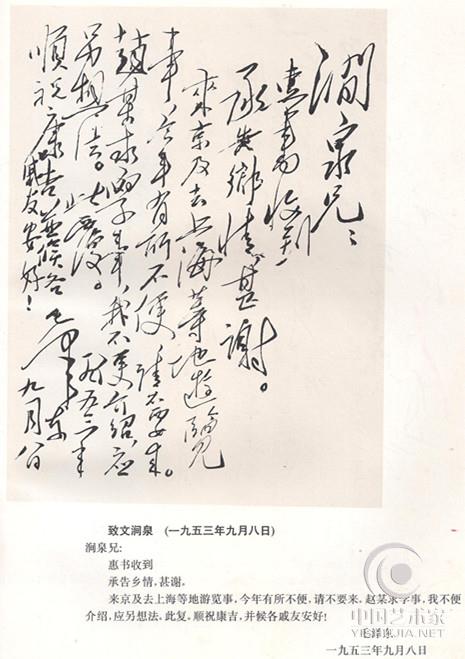 澗泉兄：
惠书均收到
承告鄉情，甚謝。
來京及去上海等地遊覽
事，今年有所不便，请不要来。
趙某求学事，我不便介绍，应
另想法。此复。
順祝康吉，並候各
戚友安好！
毛泽东
一九五三年
九月八日
致文涧泉 (一九五三年九月八日)
涧泉兄:
惠书收到
承告乡情,甚谢。
来京及去上海等地游览事,今年有所不便,请不要来。赵某求学事,我不便
介绍,应另想法。此复。顺祝康吉,并候各戚友安好!
毛泽东
一九五三年九月八日
中国艺术家
YISHUJIA.NET